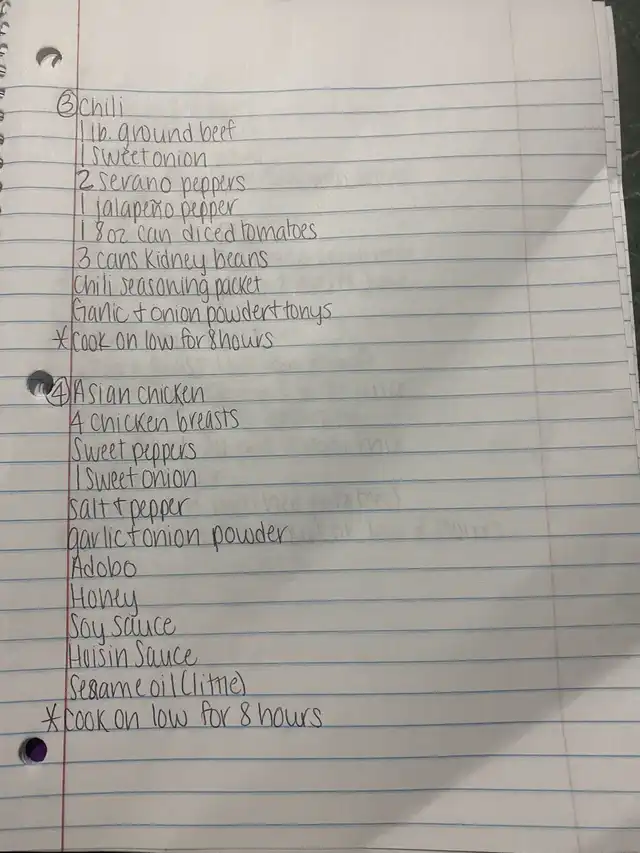 ③ Chili
1 lb. ground beef
1 sweet onion
2 serano peppers
1 jalapeño pepper
1 8oz can diced tomatoes
3 cans kidney beans
Chili seasoning packet
Garlic + onion powder + tonys
* cook on low for 8 hours
④ Asian chicken
4 chicken breasts
Sweet peppers
1 sweet onion
salt + pepper
garlic + onion powder
Adobo
Honey
Soy sauce
Hoisin Sauce
Sesame oil (little)
* cook on low for 8 hours